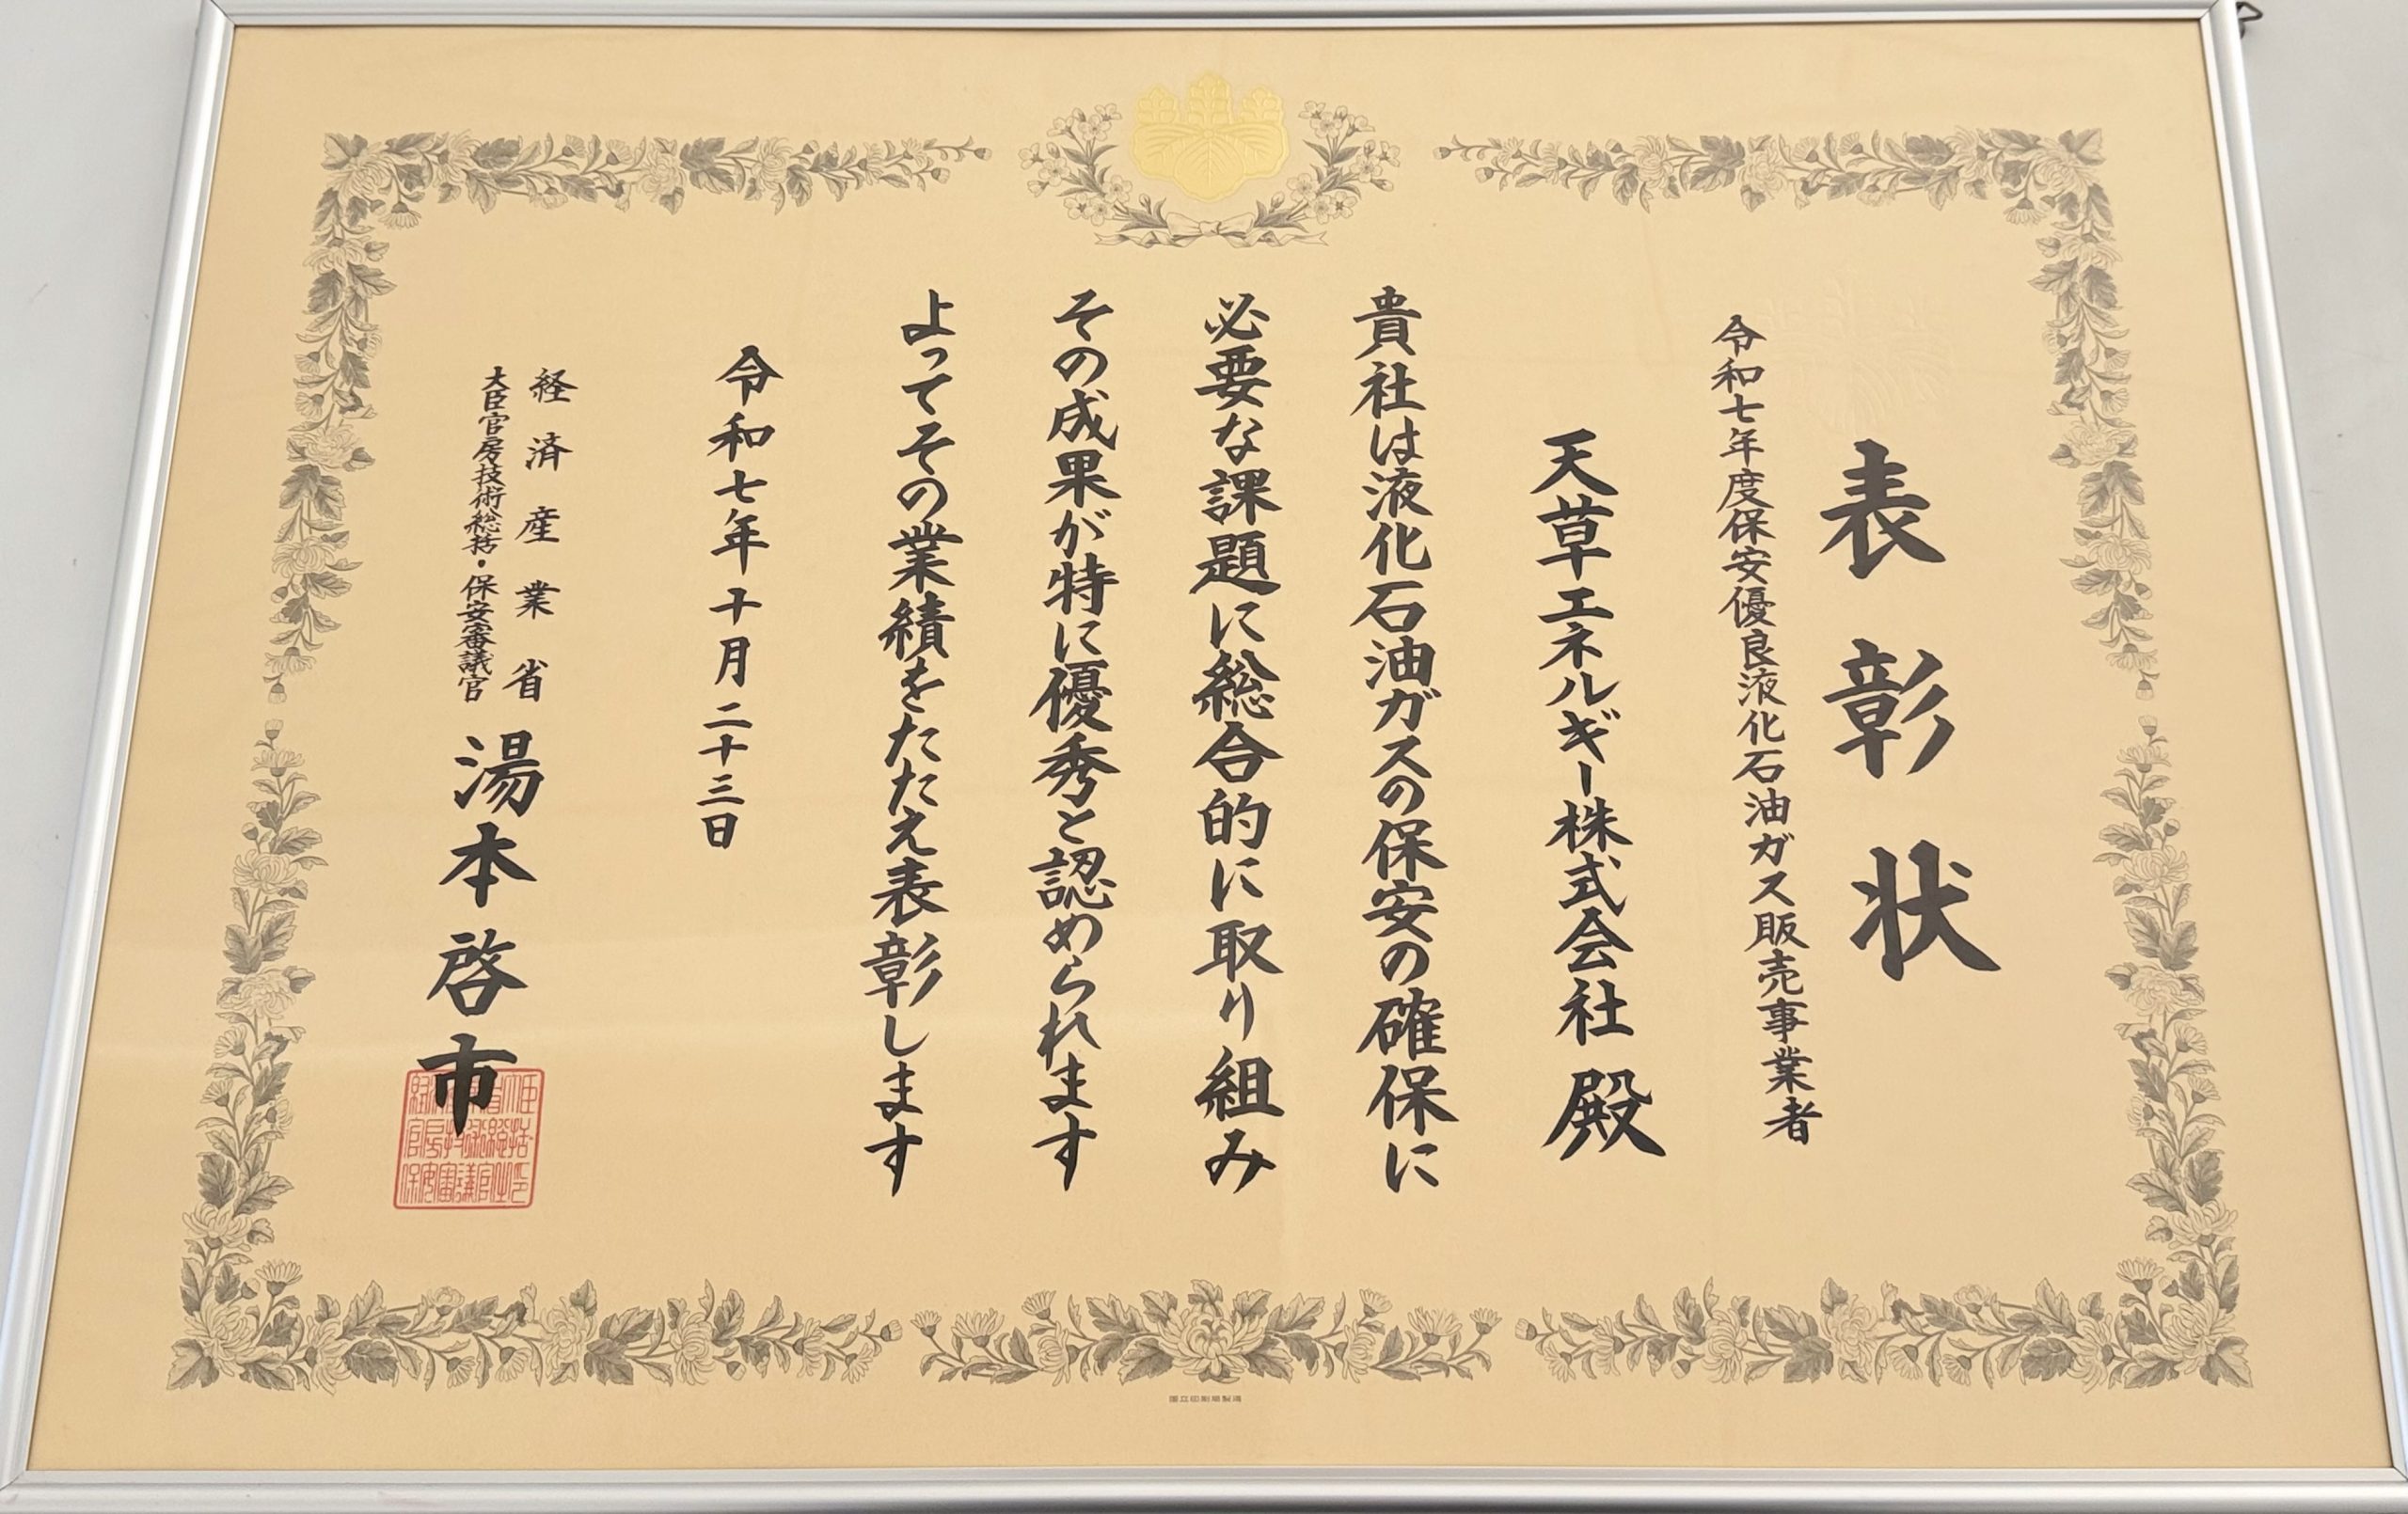 表彰状
令和七年度保安優良液化石油ガス販売事業者
天草エネルギー株式会社 殿
貴社は液化石油ガスの保安の確保に
必要な課題に総合的に取り組み
その成果が特に優秀と認められます
よってその業績をたたえ表彰します
令和七年十月二十三日
経済産業省
大臣官房技術総括・保安審議官
湯本啓市
国立印刷局製造